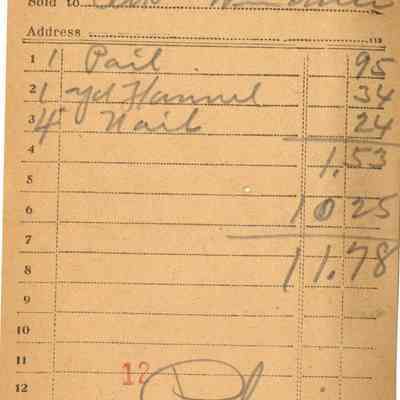 Sold to
Address 113
1 1 Pail 95
2 1 yd Flannel 34
3 4 Nails 24
4 1.53
5
6 10 25
7
8 11.78
9
10
11
12
12